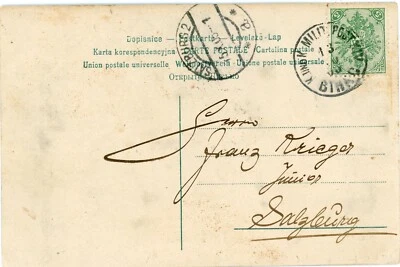 Dopisnica — Postkarte — Levelező-Lap
Karta korespondencyjna CARTE POSTALE Cartolina postale
Union postale universelle Weltpostverein Unione postale universale
K. UND K. MILIT. POST
Herrn
Franz Krieger
Junior
Salzburg